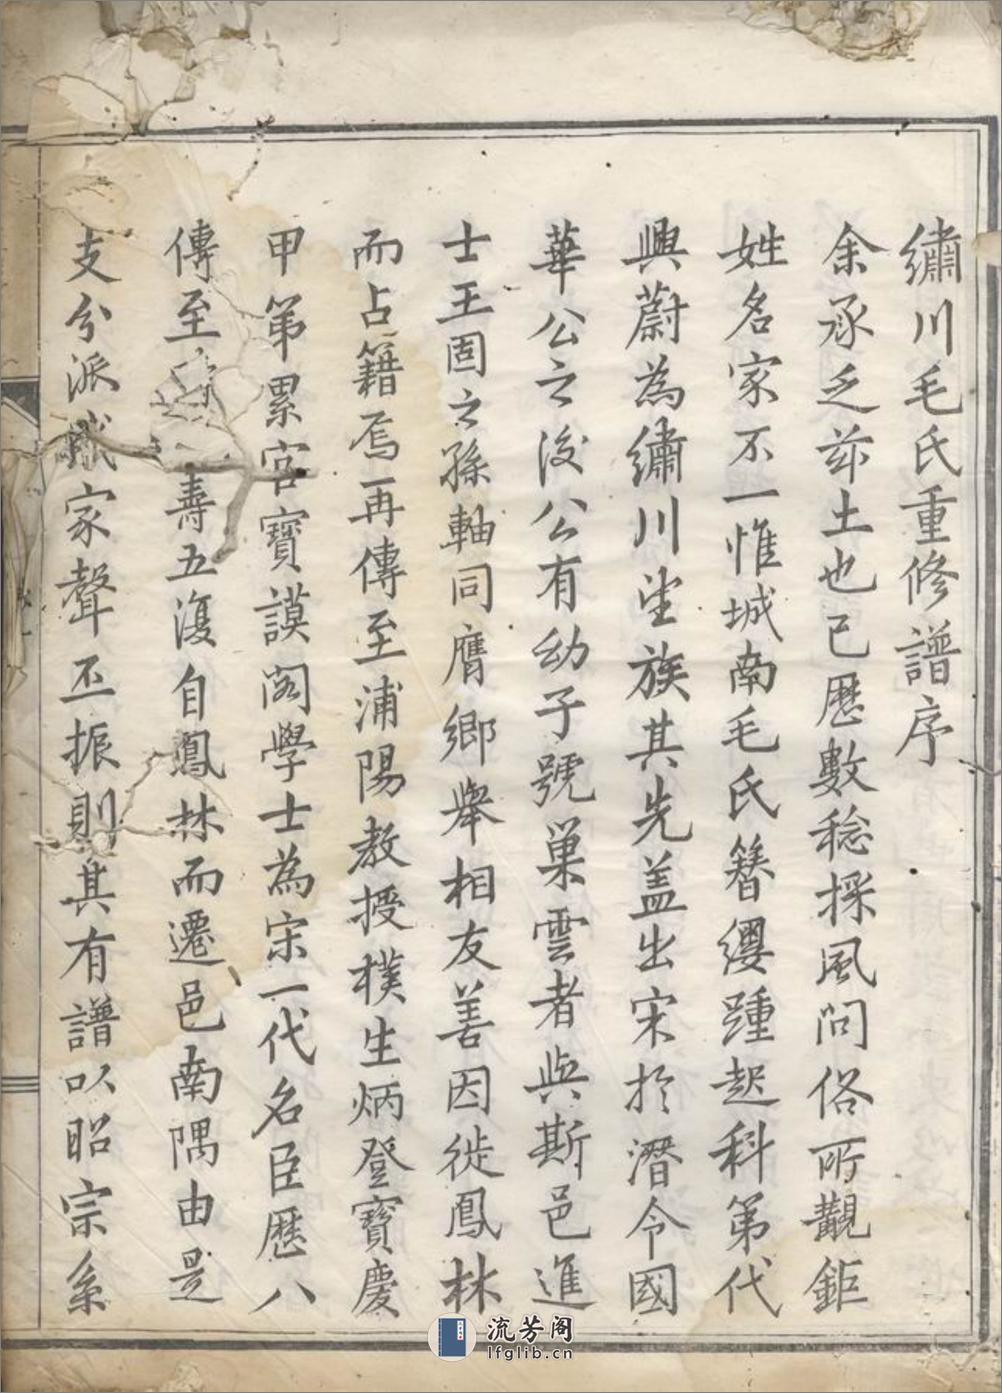 繡川毛氏重修譜序
余承乏茲土也已歷數稔採風問俗所覯鉅
姓名家不一惟城南毛氏簪纓踵起科第代
興蔚為繡川望族其先蓋出宋於潛令國
華公之後公有幼子號巢雲者與斯邑進
士王固之孫軸同膺鄉舉相友善因徙鳳林
而占籍焉再傳至浦陽教授樸生炳登寶慶
甲第累官寶謨閣學士為宋一代名臣歷八
傳至壽五復自鳳林而遷邑南隅由是
支分派家聲丕振則其有譜以昭宗系
流芳阁
lfglib.cn